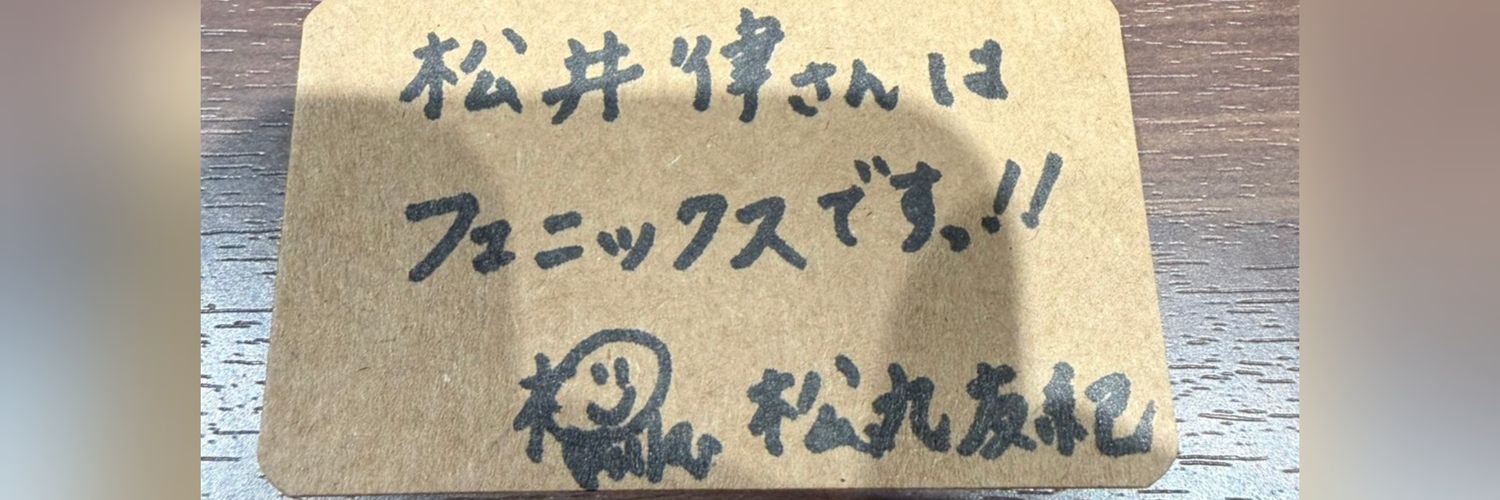 松井律さんは
フェニックスですっ!!
松丸友紀